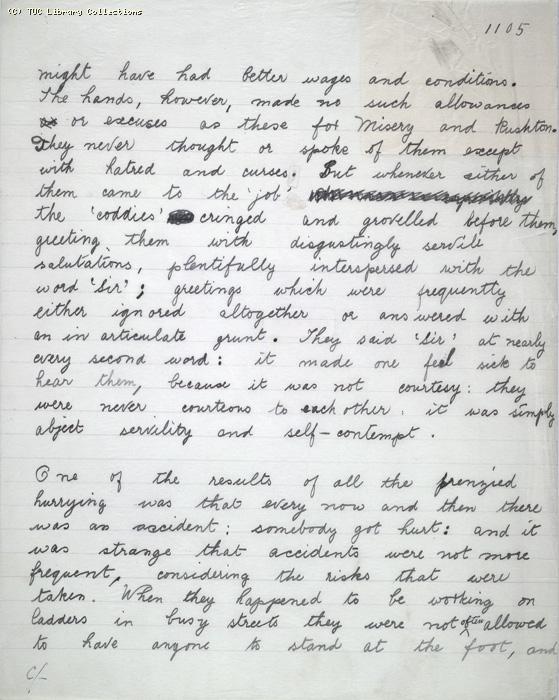 (C) TUC Library Collections
1105
might have had better wages and conditions.
The hands, however, made no such allowances
or excuses as these for Misery and Rushton.
They never thought or spoke of them except
with hatred and curses. But whenever either of
them came to the 'job'
the 'coddies' cringed and grovelled before them,
greeting them with disgustingly servile
salutations, plentifully interspersed with the
word 'Sir'; greetings which were frequently
either ignored altogether or answered with
an in articulate grunt. They said 'Sir' at nearly
every second word: it made one feel sick to
hear them, because it was not courtesy: they
were never courteous to each other: it was simply
abject servility and self-contempt.
One of the results of all the frenzied
hurrying was that every now and then there
was an accident: somebody got hurt: and it
was strange that accidents were not more
frequent, considering the risks that were
taken. When they happened to be working on
ladders in busy streets they were not often allowed
to have anyone to stand at the foot, and